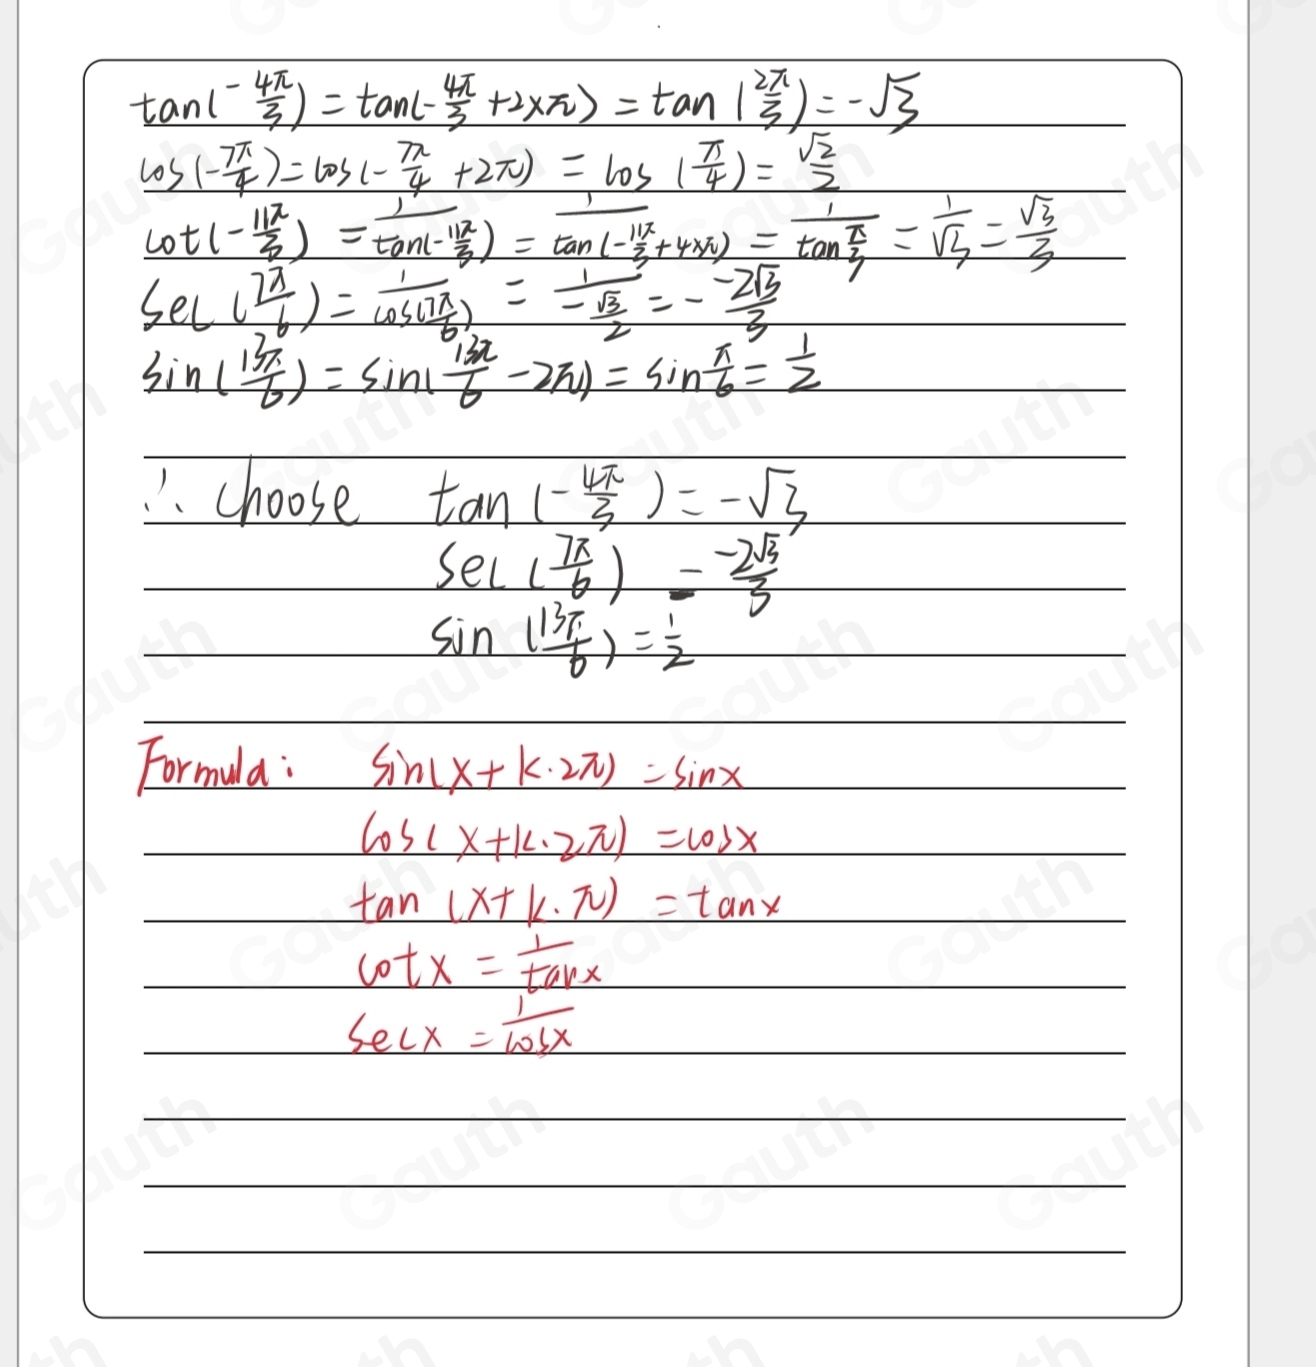 tan(-4π/3) = tan(-4π/3 +2×π) = tan(2π/3) = -√3
cos(-7π/4) = cos(-7π/4 +2π) = cos(π/4) = √2/2
cot(-11π/3) = 1/tan(-11π/3) = 1/tan(-11π/3+4×π) = 1/tan π/3 = 1/√3 = √3/3
sec(7π/6) = 1/cos(7π/6) = 1/-√3/2 = - -2√3/3
sin(13π/6) = sin(13π/6 -2π) = sin π/6 = 1/2
∴ choose tan(-4π/3) = -√3
sec(7π/6) = -2√3/3
sin(13π/6) = 1/2
Formula: sin(x+k·2π) = sinx
cos(x+k·2π) = cosx
tan(x+k·π) = tanx
cotx = 1/tanx
secx = 1/cosx
Gauth